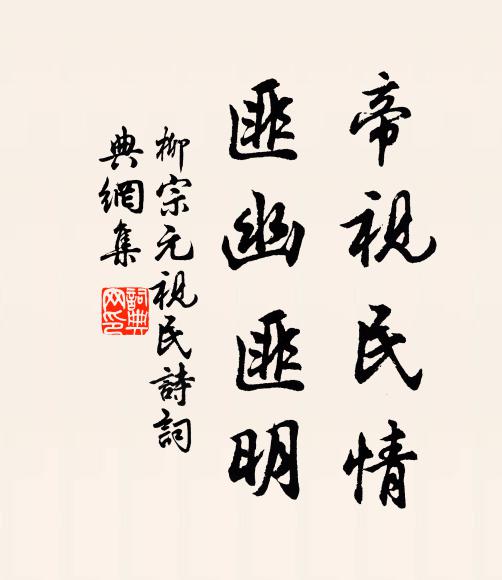 帝視民情
匪幽匪明
柳宗元視民詩詞
典網集
詞典
网印